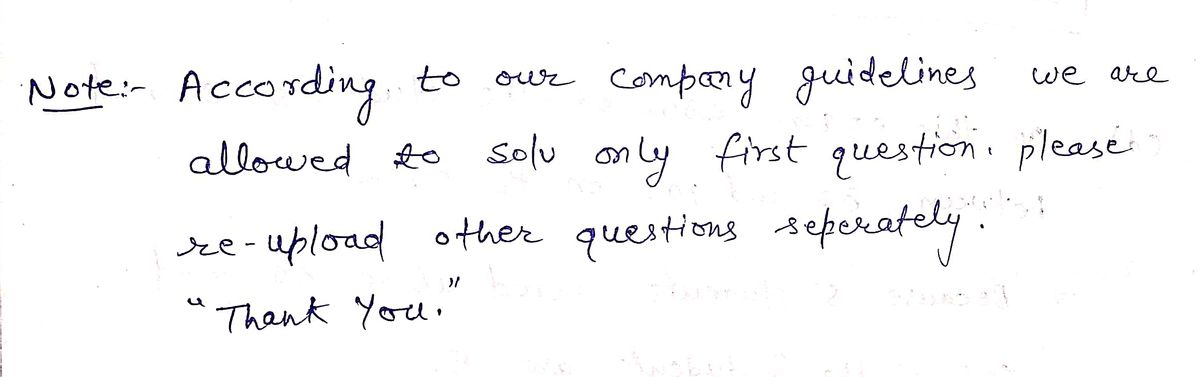 Note:- According to our company guidelines we are
allowed to solv only first question. please
re-upload other questions seperately.
"Thank You."